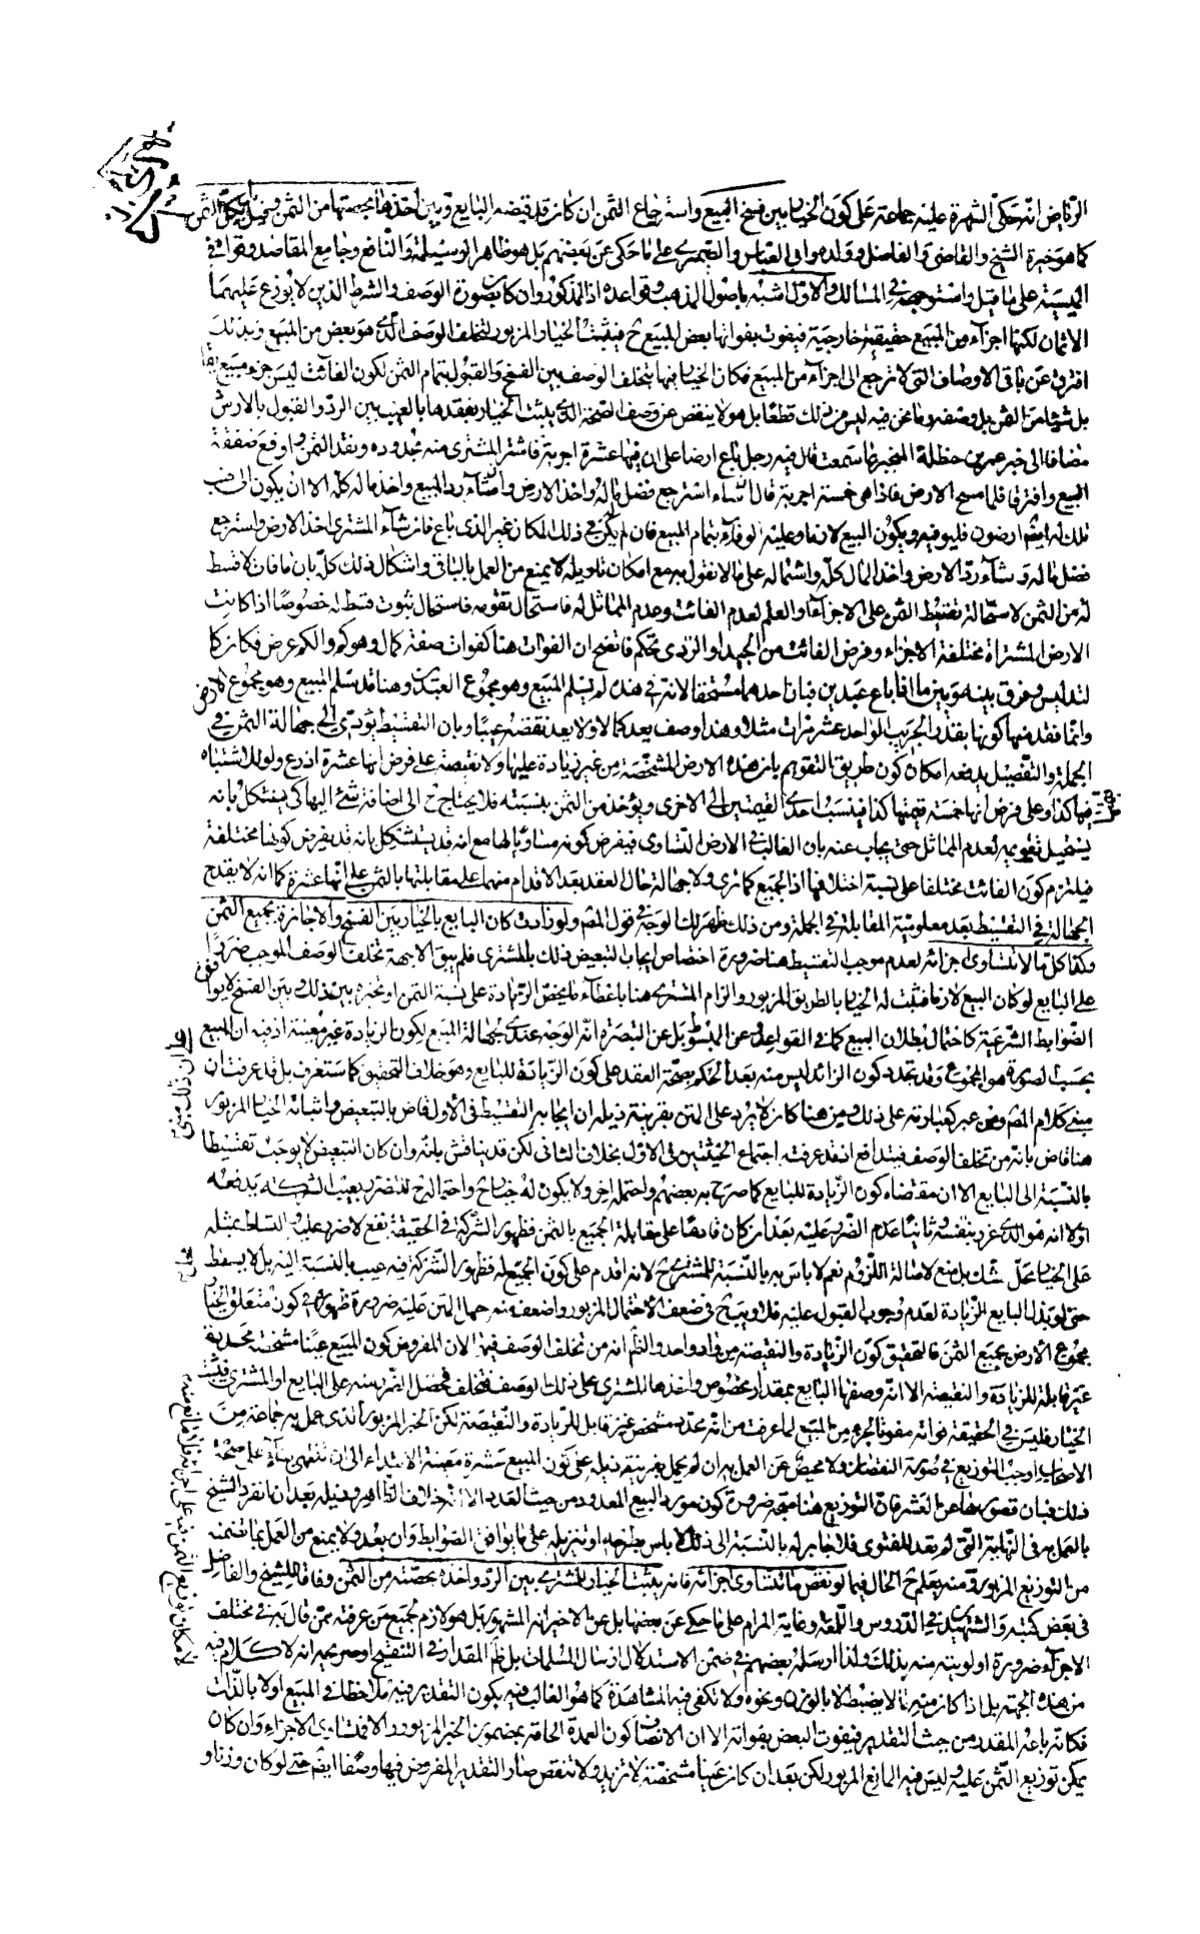 الرياض انه حكى الشهرة عليه جماعة على كون الخيار بين فسخ المبيع واسترجاع الثمن ان كان قد قبضه البايع وبين اخذها بحصتها من الثمن وقيل بكل الثمن
كما هو خيرة الشيخ والقاضي والفاضل وولده وابي العباس والصيمري على ما حكى عن بعضهم بل هو ظاهر الوسيلة والنافع وجامع المقاصد
على ما قيل واستوجهه في المسالك والاول اشبه باصول المذهب وقواعده اذ المذكور وان كان بصورة الوصف والشرط الذين لا يوزع عليهما
الاثمان لكنها اجزاء من المبيع حقيقة خارجية فيفوت بفواتها بعض المبيع ح فيثبت الخيار المزبور لتخلف الوصف الذي هو بعض من المبيع وبذلك
افترق عن باقي الاوصاف التي لا ترجع الى اجزاء من المبيع فكان الخيار فيها بتخلف الوصف بين الفسخ والقبول بتمام الثمن لكون الفائت ليس جزء مبيع
بل وما نحن فيه ليس من ذلك قطعا بل هو لا ينقص عن وصف الصحة الذي يثبت الخيار بفقدها بالعيب بين الرد والقبول بالارش
مضافا الى خبر عمر بن حنظلة المنجبر بما سمعت قال فيه رجل باع ارضا على ان فيها عشرة اجربة فاشترى المشترى منه بحدوده ونقد الثمن واوقع صفقة
البيع وافترقا فلما مسح الارض فاذا هي خمسة اجربة قال ان شاء استرجع فضل ماله واخذ الارض وان شاء رد المبيع واخذ ماله كله الا ان يكون الى جنب
تلك له ايضا ارضون فليوفيه ويكون البيع لازما وعليه الوفاء بتمام المبيع فان لم يكن في ذلك المكان غير الذى باع فان شاء المشترى اخذ الارض واسترجع
فضل ماله وان شاء رد الارض واخذ المال كله واشتماله على ما لا نقول به مع امكان تاويله لا يمنع من العمل بالباقي واشكال ذلك كله بان ما فات لا قسط
له من الثمن لاستحالة تقسيط الثمن على الاجزاء والعلم لعدم الفائت وعدم المماثل له فاستحال تقويمه فاستحال ثبوت قسط له خصوصا اذا كانت
الارض المشتراة مختلفة الاجزاء وفرض الفائت من الجيد او الردى تحكم فاتضح ان الفوات هنا كفوات صفة كمال وهو كم والكم عرض فكان كا
لتدليس وفرق بينه وبين ما اذا باع عبدين فبان احدهما مستحقا لانه في هذه لم يسلم المبيع وهو مجموع العبدين وهنا قد سلم المبيع وهو مجموع الارض
وانما فقد منها كونها بقدر الجريب الواحد عشر مرات مثلا وهذا وصف يعد كمالا ولا يعد نقصه عيبا وبان التقسيط يؤدي الى جهالة الثمن في
الجملة والتفصيل يدفعه امكان كون طريق التقويم بان هذه الارض المشخصة من غير زيادة عليها ولا نقيصة على فرض انها عشرة اذرع
كذا وعلى فرض انها خمسة قيمتها كذا فينسب احدى القيمتين الى الاخرى ويؤخذ من الثمن بنسبته فلا يحتاج ح الى اضافة شئ اليها كى يستشكل بانه
يستحيل تقويمه لعدم المماثل حتى يجاب عنه بان الغالب في الارض التساوى فيفرض كونه مساويا لها مع انه قد يستشكل بانه قد يفرض كونها مختلفة
فيلتزم كون الفائت مختلفا على نسبة اختلافها اذ الجميع كما ترى ولا جهالة حال العقد بعد الاقدام منهما على مقابلتها بالثمن على انها عشرة كما انه لا يقدح
الجهالة في التقسيط بعد معلومية المقابلة في الجملة ومن ذلك ظهر لك الوجه في قول المصنف ولو زادت كان البايع بالخيار بين الفسخ والاجازة بجميع الثمن
وكذا كل ما لا يتساوى اجزائه لعدم موجب التقسيط هنا ضرورة اختصاص ايجاب التبعيض ذلك بالمشترى فلم يبق الا جهة تخلف الوصف الموجب ضررا
على البايع لو كان البيع لازما فيثبت له الخيار بالطريق المزبور والزام المشترى هنا باعطاء ما يخص الزيادة على نسبة الثمن او تخيره بين ذلك وبين الفسخ لا يوافق
الضوابط الشرعية كاحتمال بطلان البيع كما في القواعد وعن المبسوط بل عن التبصرة انه الوجه عندى لجهالة المبيع لكون الزيادة غير معينة اذ فيه ان المبيع
بحسب الصورة هو المجموع وقد تجدد كون الزائد ليس منه بعد الحكم بصحة العقد على كون الزيادة للبايع وهو خلاف التحقيق كما ستعرف بل قد عرفت ان
مبنى كلام المصنف ومن عبر كعبارته على ذلك ومن هنا كان لا يرد على المتن بقرينة ذيله ان ايجابه التقسيط في الاول قاض بالتبعيض واثباته الخيار المزبور
هنا قاض بانه من تخلف الوصف فيتدافع اذ قد عرفت اجتماع الحيثيتين في الاول بخلاف الثانى لكن قد يناقش بانه وان كان التبعيض لا يوجب تقسيطا
بالنسبة الى البايع الا ان مقتضاه كون الزيادة للبايع كما صرح به بعضهم واحتمله اخر ولا يكون له خيار ح واحتماله ح للتضرر بعيب الشركة يدفعه
اولا انه هو الذى غر بنفسه وثانيا عدم الضرر عليه بعد ان كان قادما على مقابلة الجميع بالثمن فظهور الشركة في الحقيقة نفع لا ضرر عليه والتسلط بمثله
على الخيار محل شك بل منع لاصالة اللزوم نعم لا باس به بالنسبة للمشترى لانه اقدم على كون الجميع له فظهور الشركة فيه عيب بالنسبة اليه بل لا يسقط
حتى لو بذل البايع الزيادة لعدم وجوب القبول عليه فلا ريب ح في ضعف الاحتمال المزبور واضعف منه حمل المتن عليه ضرورة ظهوره في كون متعلق الخيار
مجموع الارض بجميع الثمن فالتحقيق كون الزيادة والنقيصة من واد واحد والظاهر انه من تخلف الوصف فيهما لان المفروض كون المبيع عينا مشخصة محدودة
غير قابلة للزيادة والنقيصة الا انه وصفها البايع بمقدار مخصوص واخذها المشترى على ذلك الوصف فتخلف فحصل الضرر منه على البايع او المشترى فيثبت
الخيار فليس في الحقيقة فواته مفوتا لجزء من المبيع لما عرفت من انه محدود مشخص غير قابل للزيادة والنقيصة لكن الخبر المزبور الذى عمل به جماعة من
الاصحاب اوجب التوزيع في صورة النقصان ولا محيص عن العمل به ان لم يحمل بقرينة ذيله على كون المبيع عشرة معينة الابتداء الى ان تنتهى بناء على صحة
ذلك فبان قصورها عن العشر فان التوزيع هنا متجه ضرورة كون مورد البيع المعدود من حيث العدد الا انه خلاف الظاهر وذيله بعد ان انفرد الشيخ
بالعمل به في النهاية التى لم تعد للفتوى فلا جابر له بالنسبة الى ذلك لا باس بطرحه او تنزيله على ما يوافق الضوابط وان بعد ولا يمنع من العمل بما تضمنه
من التوزيع المزبور ومنه يعلم ح الحال فيما لو نقص ما يتساوى اجزائه فانه يثبت الخيار للمشترى بين الرد واخذه بحصته من الثمن وفاقا للشيخ والفاضل
في بعض كتبه والشهيدين في الدروس واللمعة وغاية المرام على ما حكى عن بعضها بل عن الاخير انه المشهور بل هو لازم لجميع من عرفته ممن قال به في مختلف
الاجزاء ضرورة اولويته منه بذلك ولذا ارسله بعضهم في ضمن الاستدلال ارسال المسلمات بل ظاهر المقداد في التنقيح او صريحه انه لا كلام فيه
من هذه الجهة بل اذا كان منه ما لا يضبط الا بالوزن ونحوه ولا تكفى فيه المشاهدة كما هو الغالب فيه يكون التقدير فيه ملاحظا في المبيع اولا بالذات
فكانه باعه المقدر من حيث التقدير فيفوت البعض بفواته الا ان الانصاف كون العمدة الحاقه بمضمون الخبر المزبور والا فمتساوى الاجزاء وان كان
يمكن توزيع الثمن عليه وليس فيه المانع المزبور لكن بعد ان كان عينا مشخصة لا تزيد ولا تنقص صار التقدير المفروض فيها وصفا ايضا حتى لو كان وزنا و
على ان ذلك مبنى